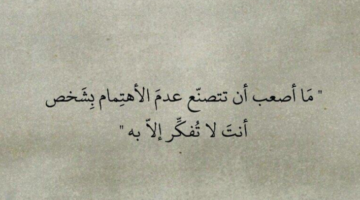 " مَا أصعب أن تتصنّع عدمَ الأهتِمام بِشَخص
أنتَ لا تُفكِّر إلاّ به "